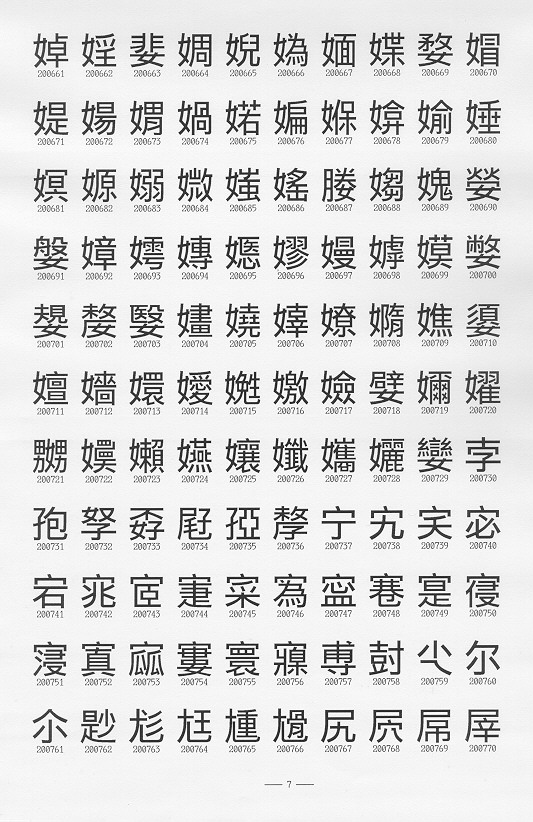 婥 婬 婓 婤 婗 媯 婳 媟 婺 媢
200661 200662 200663 200664 200665 200666 200667 200668 200669 200670
媞 婸 媦 媧 婼 媥 媬 媕 媮 娷
200671 200672 200673 200674 200675 200676 200677 200678 200679 200680
嫇 嫄 嫋 媺 媸 媱 媵 媰 媿 嫈
200681 200682 200683 200684 200685 200686 200687 200688 200689 200690
媻 嫜 嫮 嫥 嫕 嫪 嫚 嫭 嫫 嫳
200691 200692 200693 200694 200695 200696 200697 200698 200699 200700
嫢 嫠 嫛 嫿 嬈 嫴 嫽 嫷 嫶 嬃
200701 200702 200703 200704 200705 200706 200707 200708 200709 200710
嬗 嬙 嬛 嬡 嬎 嬓 嬐 嬖 嬭 嬥
200711 200712 200713 200714 200715 200716 200717 200718 200719 200720
嬲 嬽 嬾 嬿 孃 孅 孈 孋 孌 孛
200721 200722 200723 200724 200725 200726 200727 200728 200729 200730
孢 孥 孬 屘 孲 孷 宁 宄 宎 宓
200731 200732 200733 200734 200735 200736 200737 200738 200739 200740
宕 宨 宧 寁 寀 寪 寍 寋 寔 寑
200741 200742 200743 200744 200745 200746 200747 200748 200749 200750
寖 寘 寙 寠 寰 寱 尃 尌 尐 尔
200751 200752 200753 200754 200755 200756 200757 200758 200759 200760
尒 尟 尨 尪 尰 尳 尻 屄 屌 屖
200761 200762 200763 200764 200765 200766 200767 200768 200769 200770
— 7 —